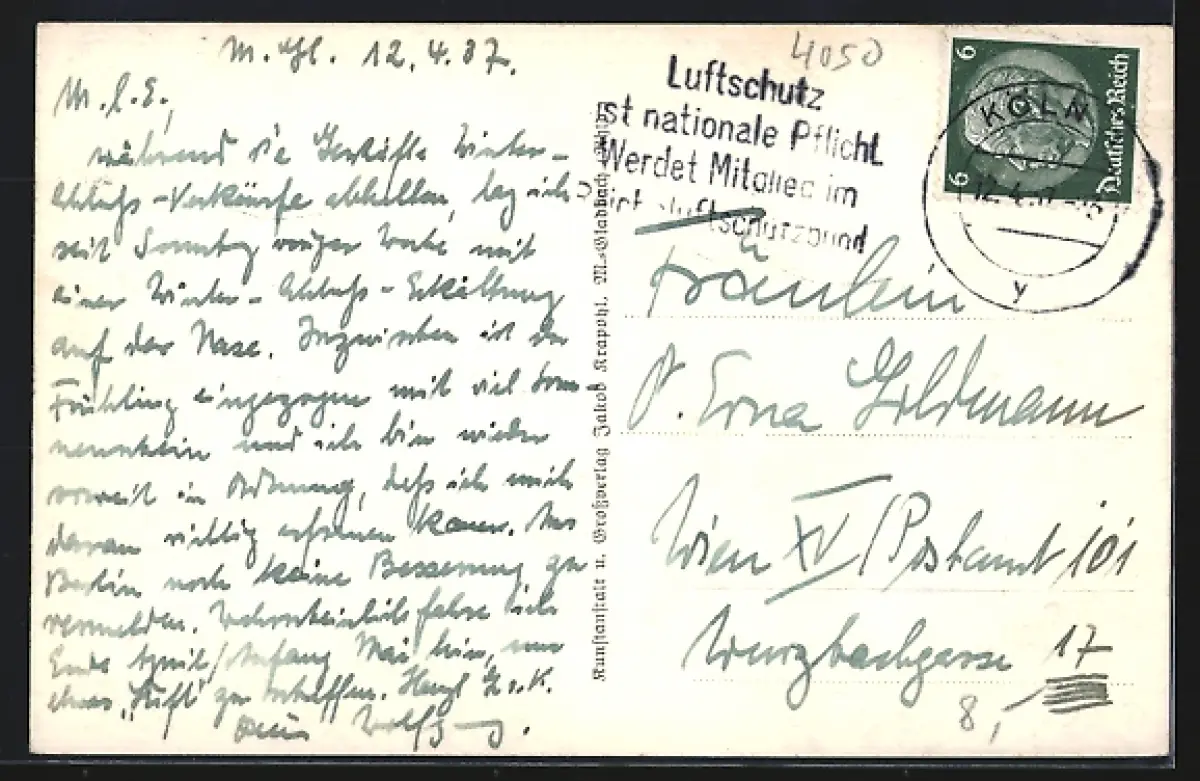 M. Gl. 12.4.37.
M. l. E.,
während die Geschäfte Winter-
schluß-Verkäufe abhalten, lag ich
seit Sonntag voriger Woche mit
einer Winter-Schluß-Erkältung
auf der Nase. Inzwischen ist der
Frühling eingezogen mit viel Son-
nenschein und ich bin wieder
soweit in Ordnung, daß ich mich
daran richtig erfreuen kann. Aus
Berlin noch keine Besserung zu
vermelden. Wahrscheinlich fahre ich
Ende April/Anfang Mai hin, um
etwas „Luft" zu schaffen. Herzl. G. u. K.
Dein Wolfg.
Kunstanstalt u. Großverlag Jakob Krapohl. M.-Gladbach
4050
Luftschutz
ist nationale Pflicht
Werdet Mitglied im
Luftschutzbund
6
6
Deutsches Reich
KÖLN
12.4.37
y
Fräulein
Erna Goldmann
Wien XV/Postamt 101
Wurzbachgasse 17
8,